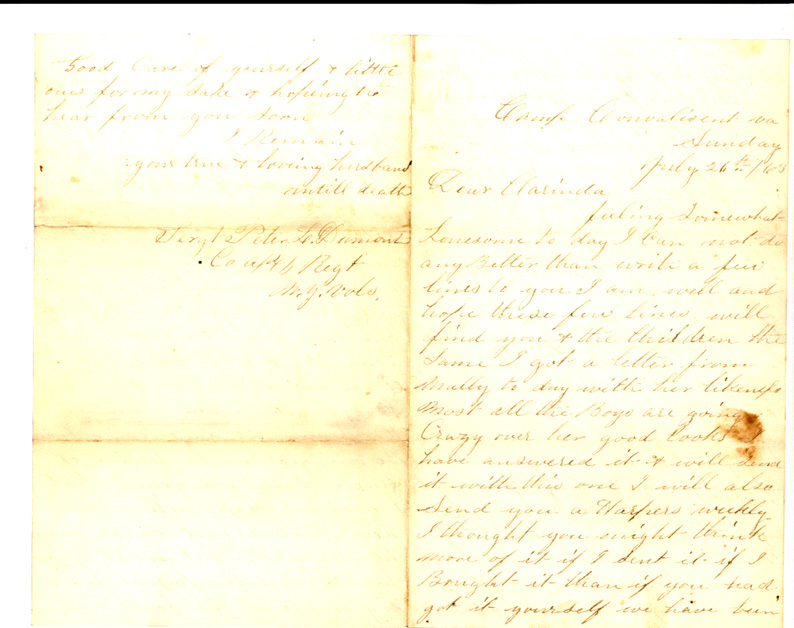 Camp Convalisent va
Sunday
July 26th / 63
Dear Clarinda
feeling Somewhat
Lonesome to day I Can not do
any Better than write a few
lines to you I am well and
hope these few lines will
find you & the Children the
Same I got a letter from
Mally to day with her likeness
Most all the Boys are going
Crazy over her good looks I
have answered it & will send
it with this one I will also
Send you a Harpers weekly
I thought you might think
more of it if I sent it if I
Bought it than if you had
got it yourself we have been
Good Care of yourself & little
ones for my Sake & hopeing to
hear from you Soon
I Remain
your true & loving husband
untill death
Sergt Peter L. Dumont
Co
Regt
Vols.